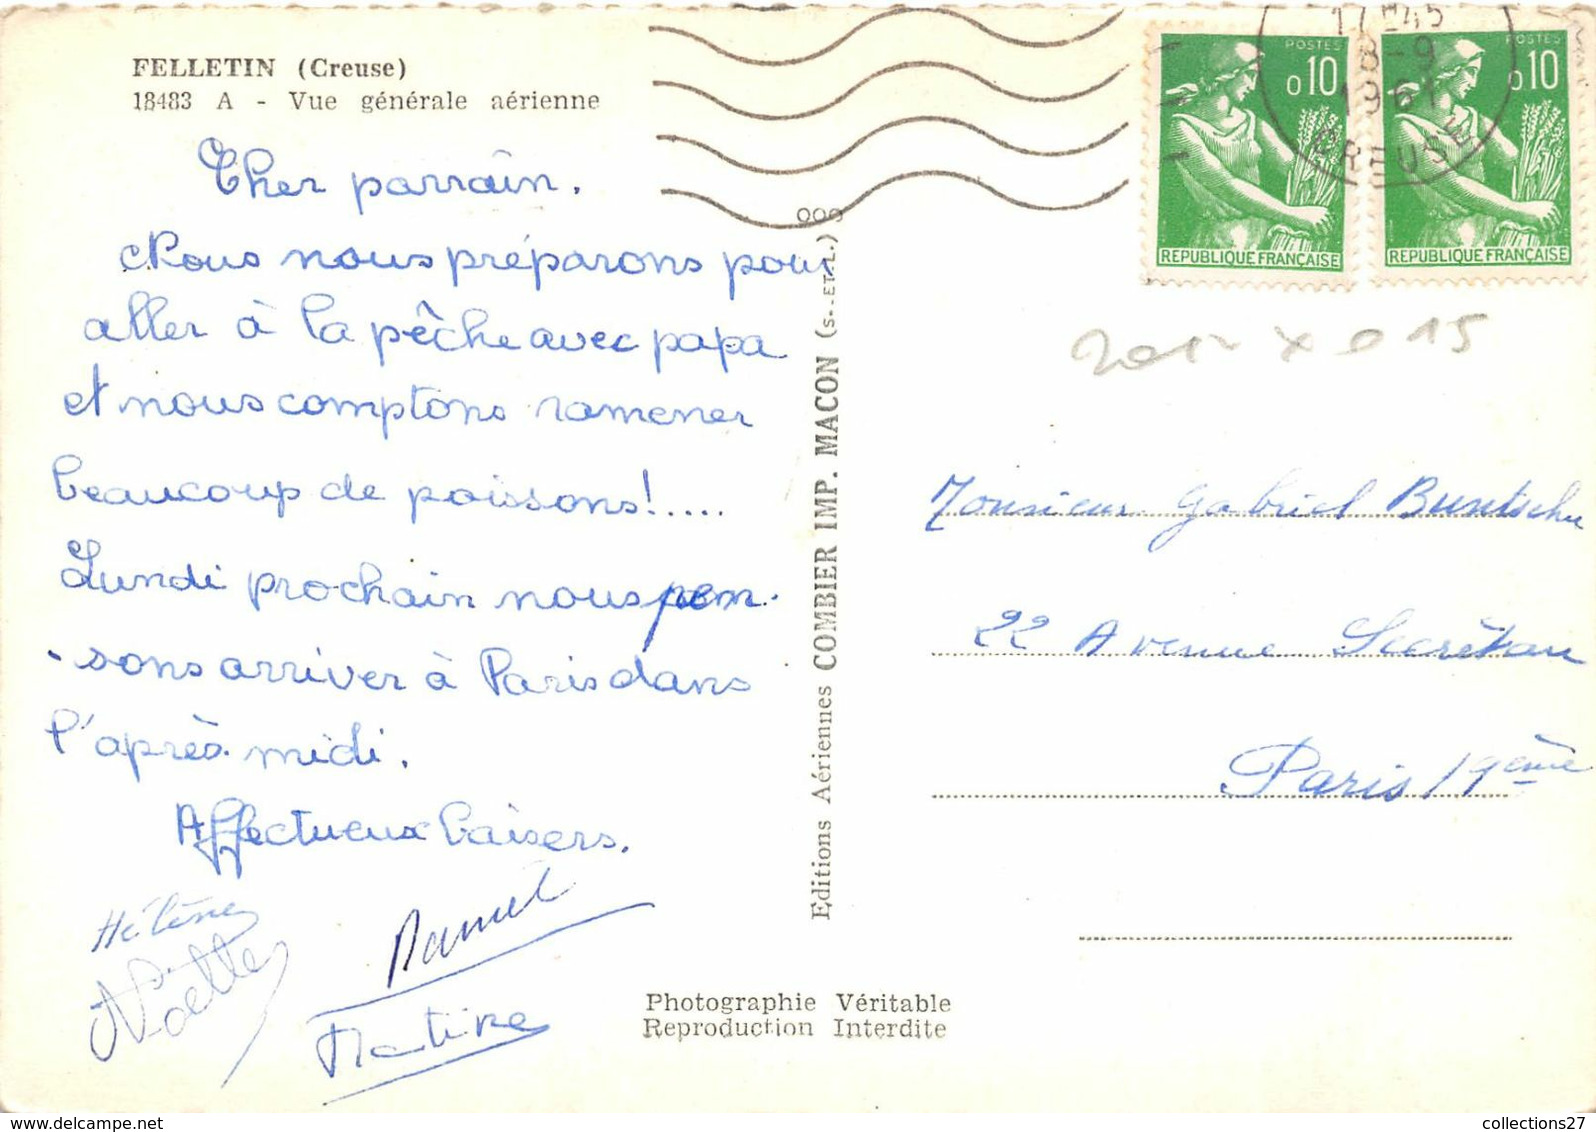 FELLETIN (Creuse)
18483 A - Vue générale aérienne
Cher parrain.
Nous nous préparons pour
aller à la pêche avec papa
et nous comptons ramener
beaucoup de poissons!.....
Lundi prochain nous pen-
-sons arriver à Paris dans
l'après-midi.
Affectueux baisers.
Hélène
Noëlle
Daniel
Martine
Editions Aériennes COMBIER IMP. MACON (S.-ET-L.) 000
Photographie Véritable
Reproduction Interdite
POSTES
0,10
REPUBLIQUE FRANÇAISE
POSTES
0,10
REPUBLIQUE FRANÇAISE
17H45
8-9
1961
CREUSE
15
Monsieur Gabriel Buntschu
22 Avenue Secrétan
Paris 19ème
collections27